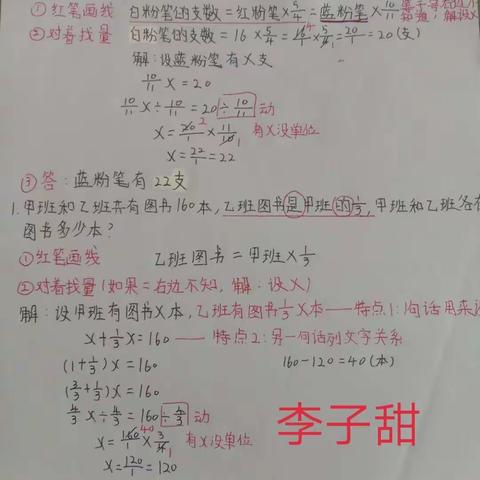 ①红笔画线 白粉笔的支数=红粉笔×5/4=蓝粉笔×10/11
②对着找量 白粉笔的支数=16×5/4=16/1×5/4=20/1=20(支)
解:设蓝粉笔有X支
10/11 X=20
10/11 X÷10/11=20÷10/11 动
X=20/1×11/10 有X没单位
X=22/1=22
③答:蓝粉笔有22支
1.甲班和乙班共有图书160本,乙班图书是甲班的1/3,甲班和乙班各有
图书多少本?
①红笔画线 乙班图书=甲班×1/3
②对着找量(如果=右边不知,解:设X)
解:设甲班有图书X本,乙班有图书1/3X本——特点1:1句话用来设
X+1/3X=160——特点2:另一句话列文字关系
(1+1/3)X=160 160-120=40(本)
(3/3+1/3)X=160
4/3X÷4/3=160÷4/3 动
X=160/1×3/4 有X没单位
X=120/1=120
李子甜